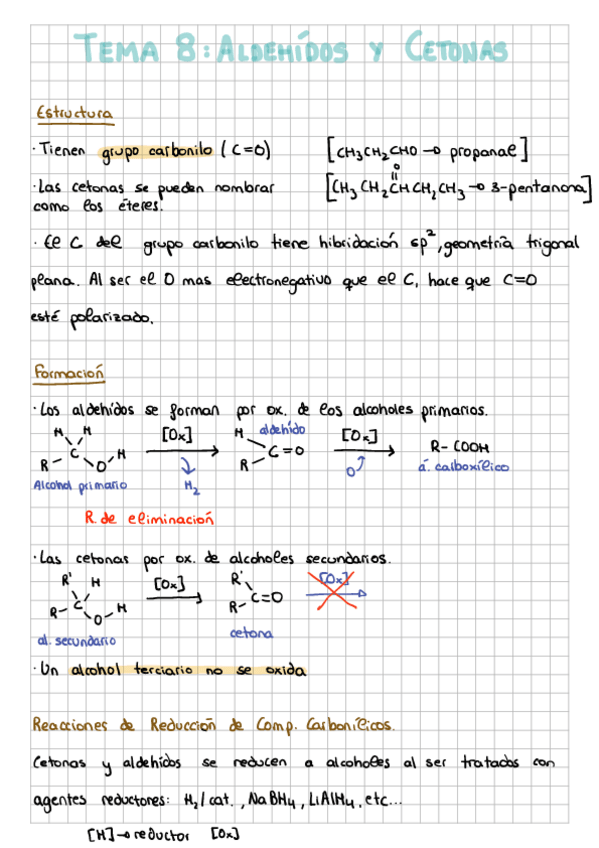 TEMA 8: ALDEHÍDOS Y CETONAS
Estructura
· Tienen grupo carbonilo (C=O) [CH3CH2CHO → propanal]
· Las cetonas se pueden nombrar
como los éteres.
O
[CH3 CH2 CH CH2 CH3 → 3-pentanona]
· El C del grupo carbonilo tiene hibridación sp², geometría trigonal
plana. Al ser el O mas electronegativo que el C, hace que C=O
esté polarizado.
Formación
· Los aldehídos se forman por ox. de los alcoholes primarios.
H H
R C O H
[Ox]
H2
H aldehído
R C=O
[Ox]
O
R-COOH
Alcohol primario
á. calboxílico
R. de eliminación
· Las cetonas por ox. de alcoholes secundarios.
R' H
R C O H
[Ox]
R'
R C=O
[Ox]
al. secundario
cetona
· Un alcohol terciario no se oxida
Reacciones de Reducción de Comp. Carbonílicos.
Cetonas y aldehídos se reducen a alcoholes al ser tratados con
agentes reductores: H2/cat., NaBH4, LiAlH4, etc...
[H] → reductor [Ox]